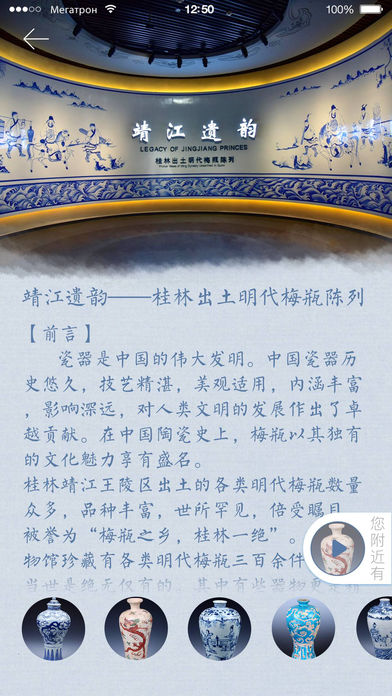 Мегатрон
12:50
100%
靖江遗韵
LEGACY OF JINGJIANG PRINCES
桂林出土明代梅瓶陈列
靖江遗韵——桂林出土明代梅瓶陈列
【前言】
瓷器是中国的伟大发明。中国瓷器历
史悠久，技艺精湛，美观适用，内涵丰富
，影响深远，对人类文明的发展作出了卓
越贡献。在中国陶瓷史上，梅瓶以其独有
的文化魅力享有盛名。
桂林靖江王陵区出土的各类明代梅瓶数量
众多，品种丰富，世所罕见，倍受瞩目，
被誉为“梅瓶之乡，桂林一绝”。
物馆珍藏有各类明代梅瓶三百余件
当世是绝无仅有的，其中有些器物更是
您附近有